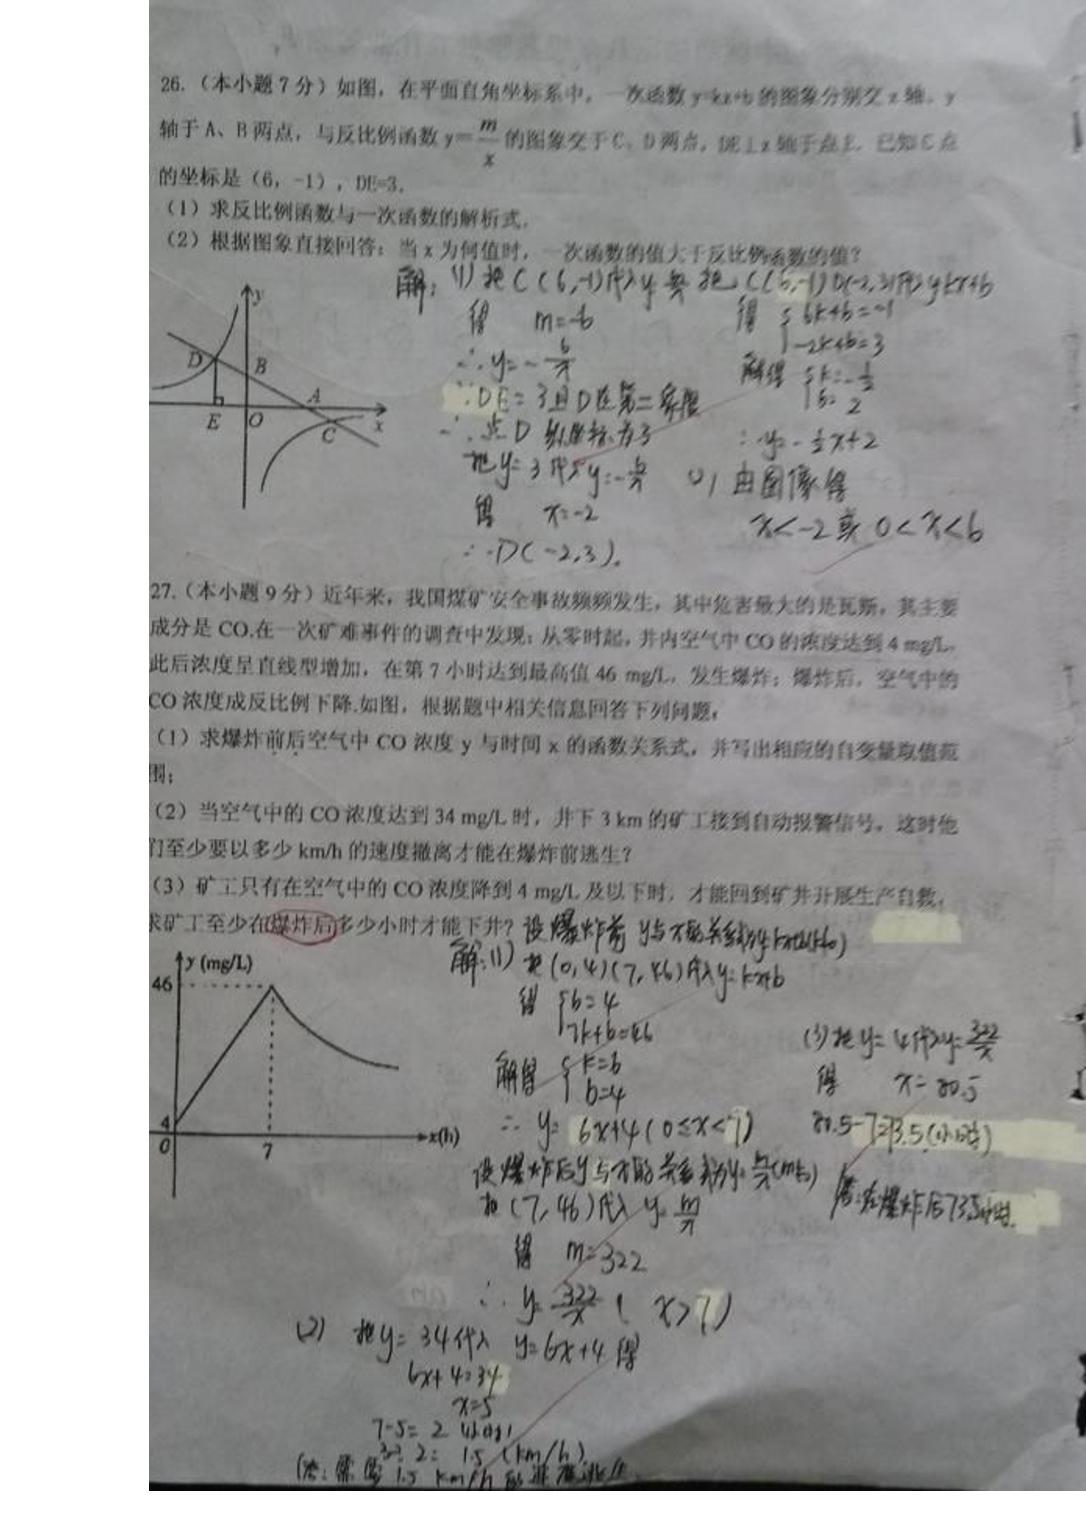 26.（本小题7分）如图，在平面直角坐标系中，一次函数 y=kx+b 的图象分别交 x 轴、y
轴于 A、B 两点，与反比例函数 y=m/x 的图象交于 C、D 两点，DE⊥x 轴于点 E. 已知 C 点
的坐标是（6，-1），DE=3.
（1）求反比例函数与一次函数的解析式.
（2）根据图象直接回答：当 x 为何值时，一次函数的值大于反比例函数的值？
解：(1) 把 C(6,-1)代入 y=m/x 把 C(6,-1) D(-2,3)代入 y=kx+b
得 m=-6
得 6k+b=-1
-2k+b=3
∴y=-6/x
解得 k=-1/2
b=2
∵DE=3且D在第二象限
∴点D纵坐标为3
∴y=-1/2x+2
把y=3代入y=-6/x
得 x=-2
∴D(-2,3).
(2) 由图像得
x<-2或0<x<6
y
D
B
A
E
O
C
x
27.（本小题9分）近年来，我国煤矿安全事故频频发生，其中危害最大的是瓦斯，其主要
成分是 CO.在一次矿难事件的调查中发现：从零时起，井内空气中 CO 的浓度达到 4 mg/L，
此后浓度呈直线型增加，在第 7 小时达到最高值 46 mg/L，发生爆炸；爆炸后，空气中的
CO 浓度成反比例下降.如图，根据题中相关信息回答下列问题：
（1）求爆炸前后空气中 CO 浓度 y 与时间 x 的函数关系式，并写出相应的自变量取值范
围；
（2）当空气中的 CO 浓度达到 34 mg/L 时，井下 3 km 的矿工接到自动报警信号，这时他
们至少要以多少 km/h 的速度撤离才能在爆炸前逃生？
（3）矿工只有在空气中的 CO 浓度降到 4 mg/L 及以下时，才能回到矿井开展生产自救，
求矿工至少在爆炸后多少小时才能下井？
设爆炸前 y与x的关系式为y=kx+b(k≠0)
解:(1) 把(0,4)(7,46)代入y=kx+b
得 b=4
7k+b=46
解得 k=6
b=4
∴ y=6x+4(0≤x<7)
设爆炸后y与x的关系式为y=m/x(m≠0)
把(7,46)代入 y=m/x
得 m=322
∴ y=322/x ( x>7)
(2) 把y=34代入 y=6x+4得
6x+4=34
x=5
7-5=2(小时)
3÷2=1.5(km/h)
答:需要1.5 km/h的速度逃生.
(3)把y=4代入y=322/x
得 x=80.5
80.5-7=73.5(小时)
答:在爆炸后73.5小时.
y (mg/L)
46
4
0
7
x(h)